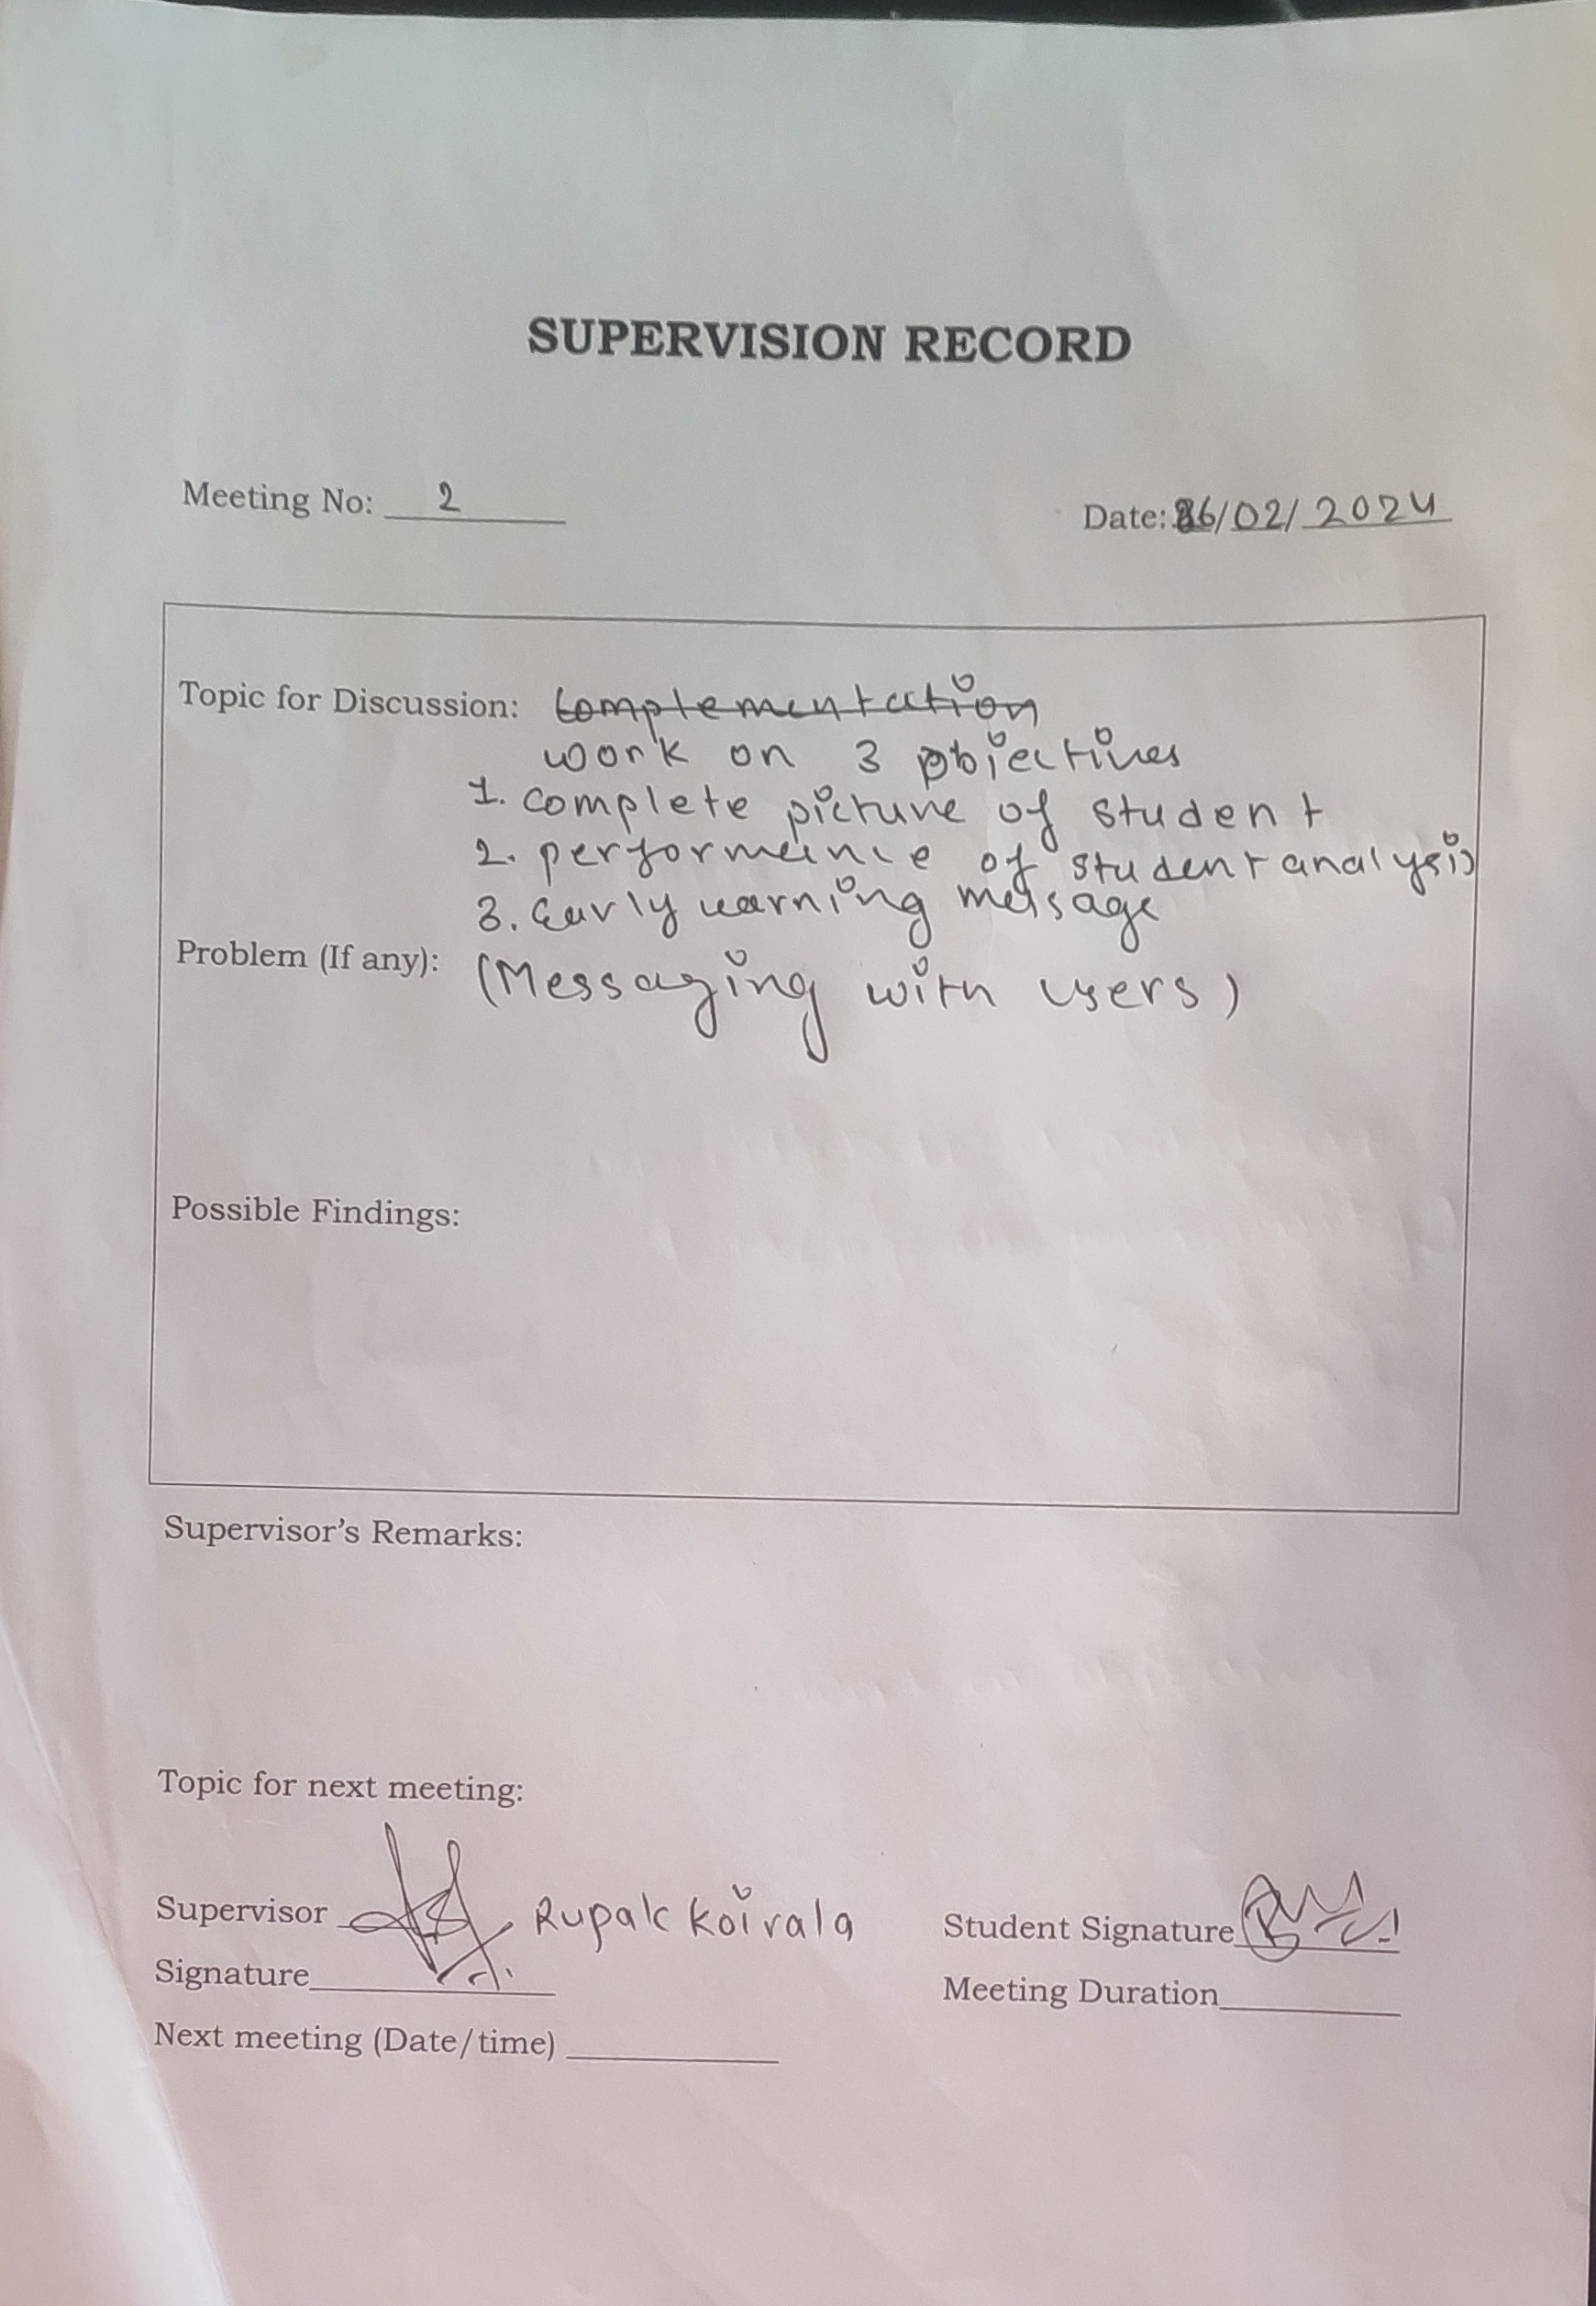 SUPERVISION RECORD
Meeting No: 2
Date: /02/2024
Topic for Discussion: complementation
work on 3 objectives
1. complete picture of student
2. performance of student analysis
3. Early warning message
Problem (If any): (Messaging with users)
Possible Findings:
Supervisor's Remarks:
Topic for next meeting:
Supervisor Rupak Koirala
Student Signature
Signature
Meeting Duration
Next meeting (Date/time)